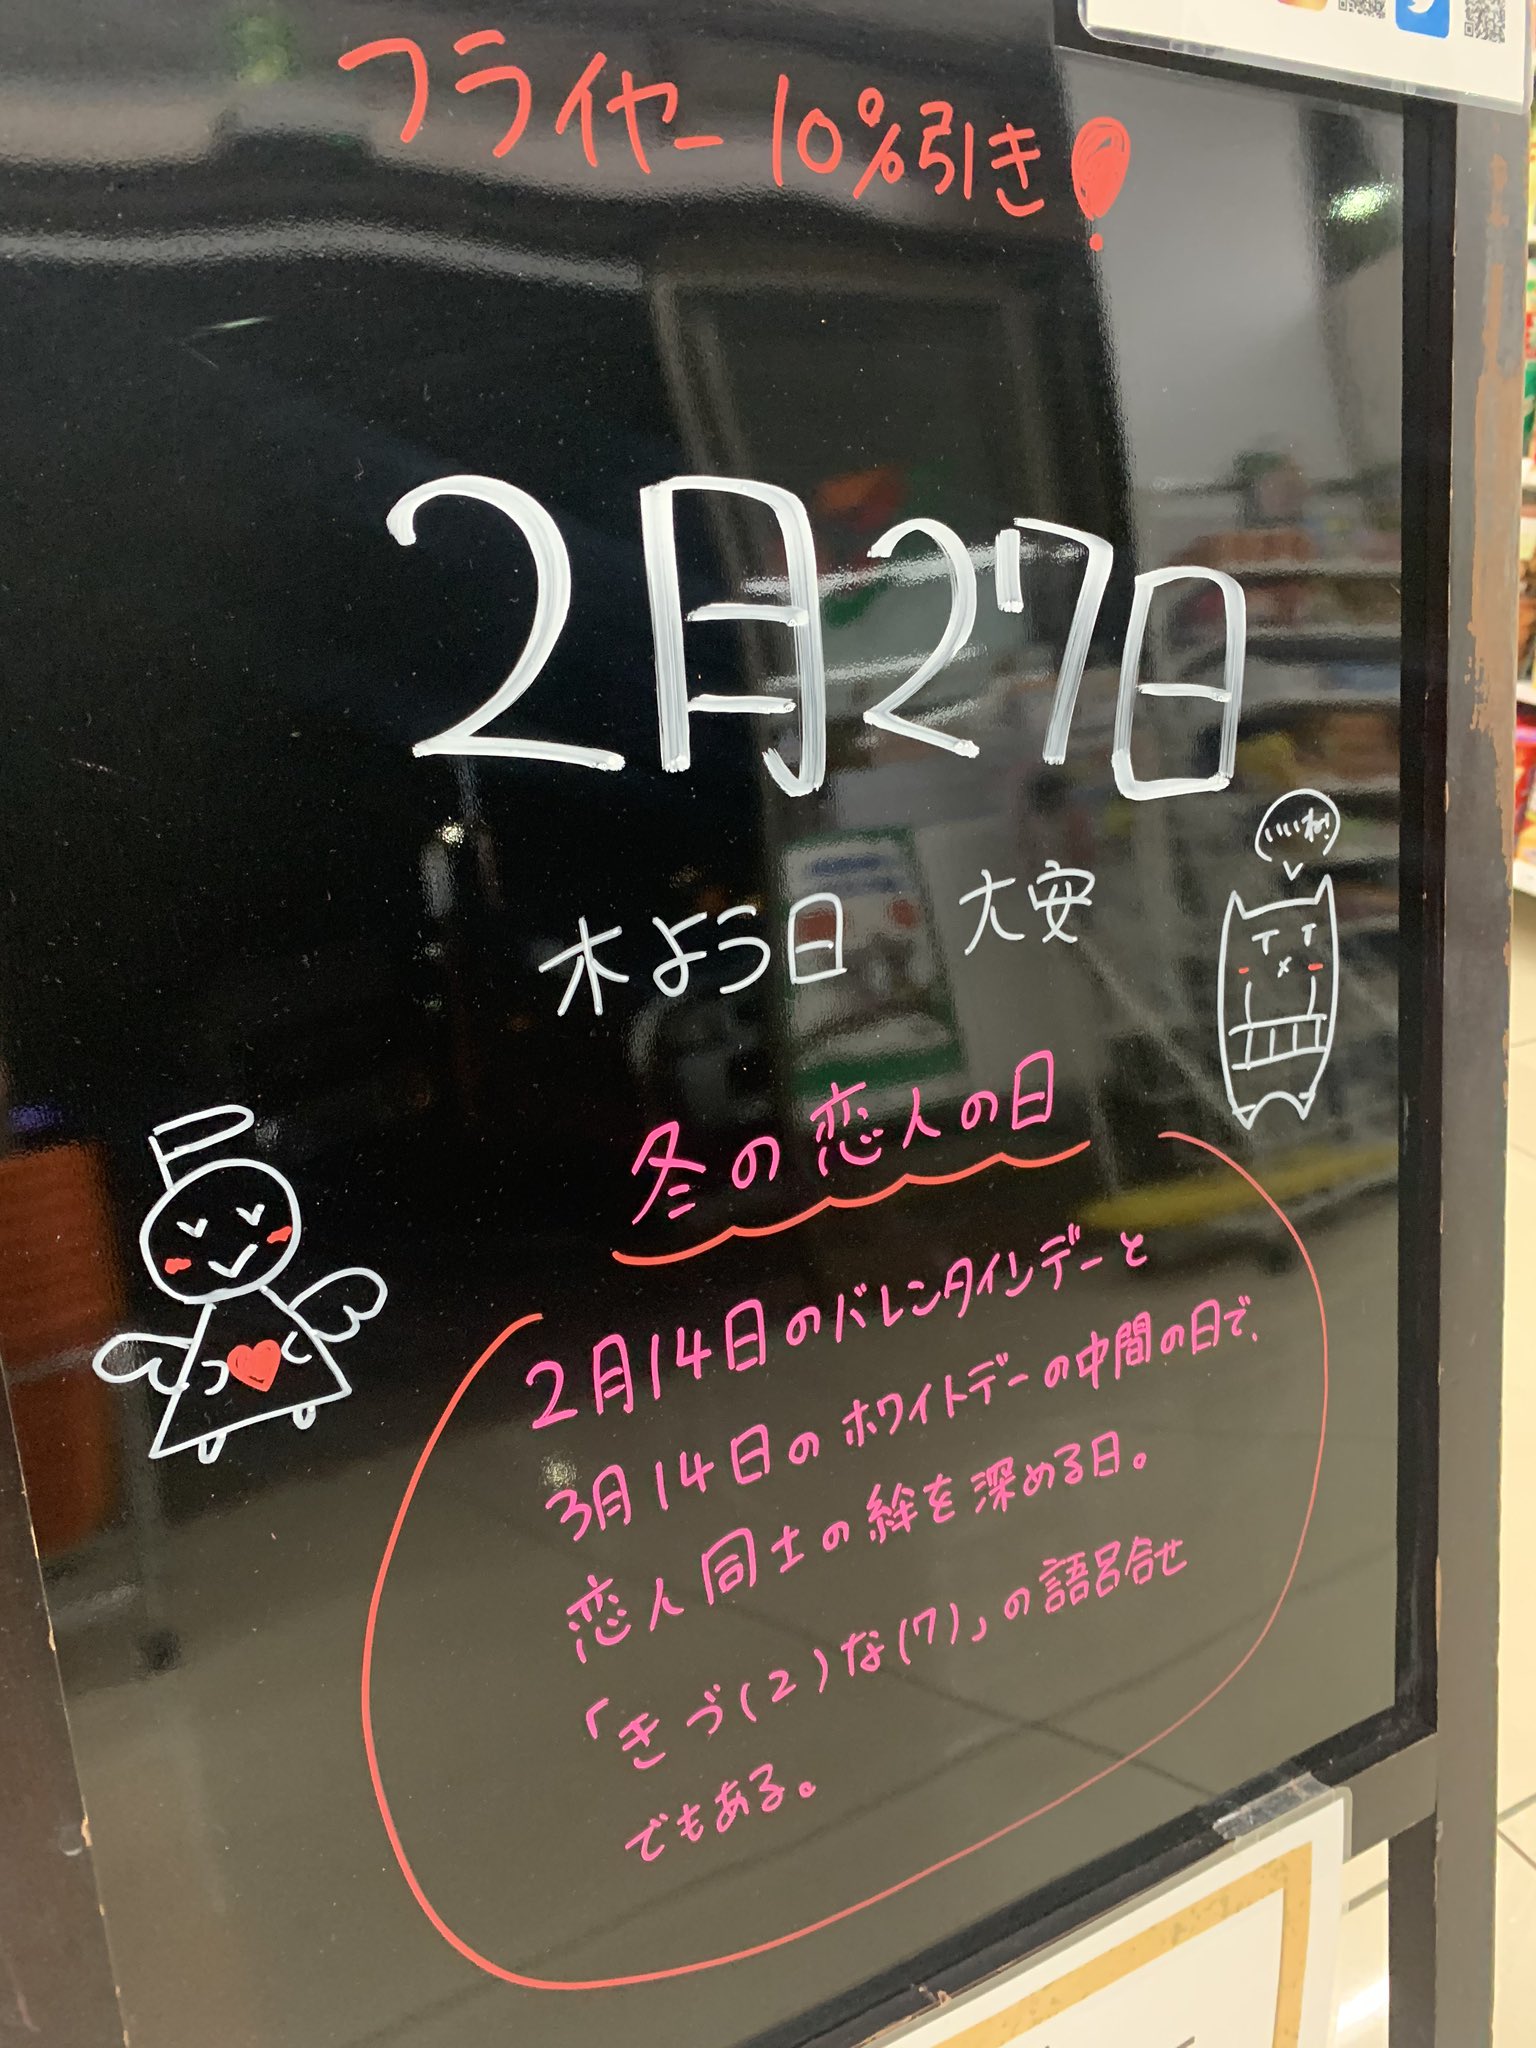 フライヤー 10%引き!
2月27日
いいね!
木よう日 大安
冬の恋人の日
2月14日のバレンタインデーと
3月14日のホワイトデーの中間の日で、
恋人同士の絆を深める日。
「きづ(2)な(7)」の語呂合せ
でもある。